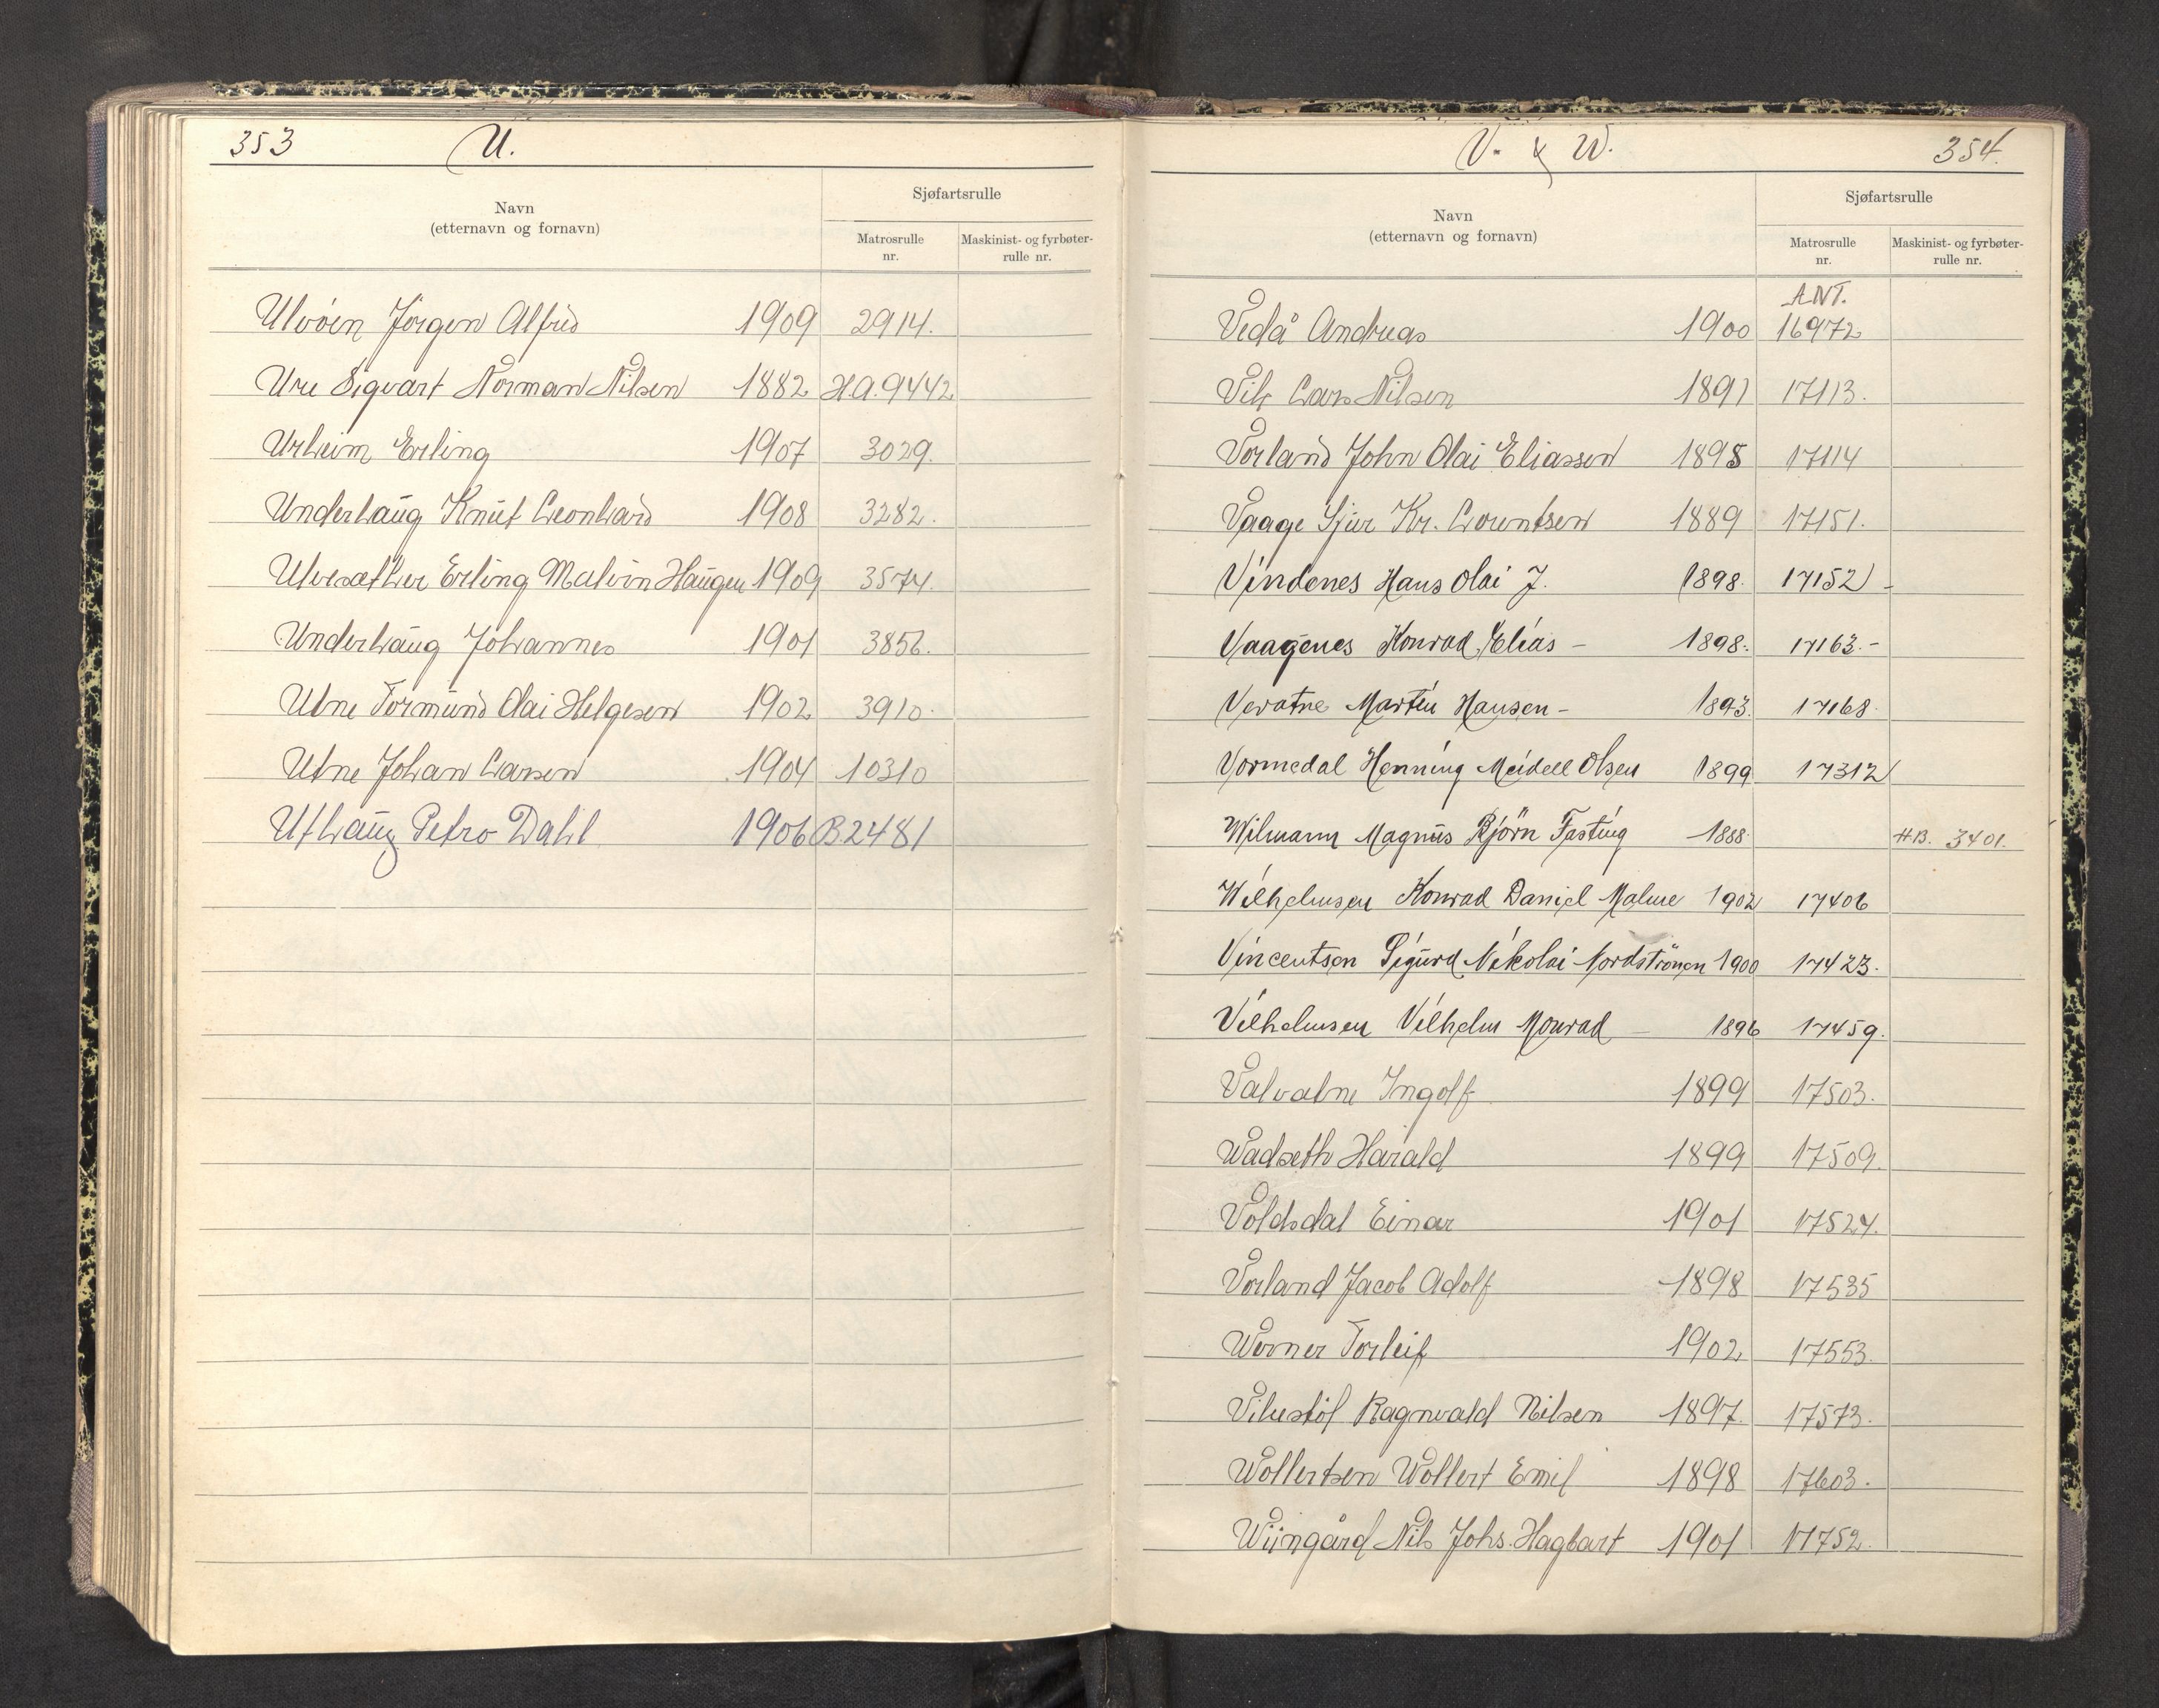 353
U.
Navn
(etternavn og fornavn)
Sjøfartsrulle
Matrosrulle
nr.
Maskinist- og fyrbøter-
rulle nr.
Ulvöen Jörgen Alfred 1909 2914.
Ure Sigvart Norman Nilsen 1882 H.A.9442
Urheim Erling 1907 3029.
Underhaug Knut Leonhard 1908 3282.
Ulvesæther Erling Malvin Haugen 1909 3574.
Underhaug Johannes 1901 3856.
Utne Tormund Olai Helgesen 1902 3910.
Utne Johan Larsen 1904 10310
Uthaug Petro Dahl 1906 B.2481
V. & W.
354.
Navn
(etternavn og fornavn)
Sjøfartsrulle
Matrosrulle
nr.
Maskinist- og fyrbøter-
rulle nr.
ANT.
Vedå Andreas 1900 16972
Vik Lars Nilsen 1891 17113.
Vorland John Olai Eliassen 1895 17114
Vaage Sjur Kr. Lorentsen 1889 17151.
Vindenes Hans Olai J. 1898. 17152 -
Vaagenes Konrad Elias - 1898. 17163. -
Veratne Martin Hansen - 1893. 17168.
Vormedal Henning Meidell Olsen 1899 17312
Wilmann Magnus Bjørn Fasting 1888 HB. 3401.
Wilhelmsen Konrad Daniel Malme 1902 17406
Vincentsen Sigurd Nikolai Nordströnen 1900 17423.
Vilhelmsen Vilhelm Monrad - 1896 17459.
Valvatne Ingolf 1899 17503.
Wadseth Harald 1899 17509.
Voldsdal Einar 1901 17524.
Vorland Jacob Adolf 1898 17535
Werner Torleif 1902 17553.
Ragnvald Nilsen 1897. 17573.
Wollertsen Wollert Emil 1898 17603.
Wiingård Nils Johs. Hagbart 1901 17752.